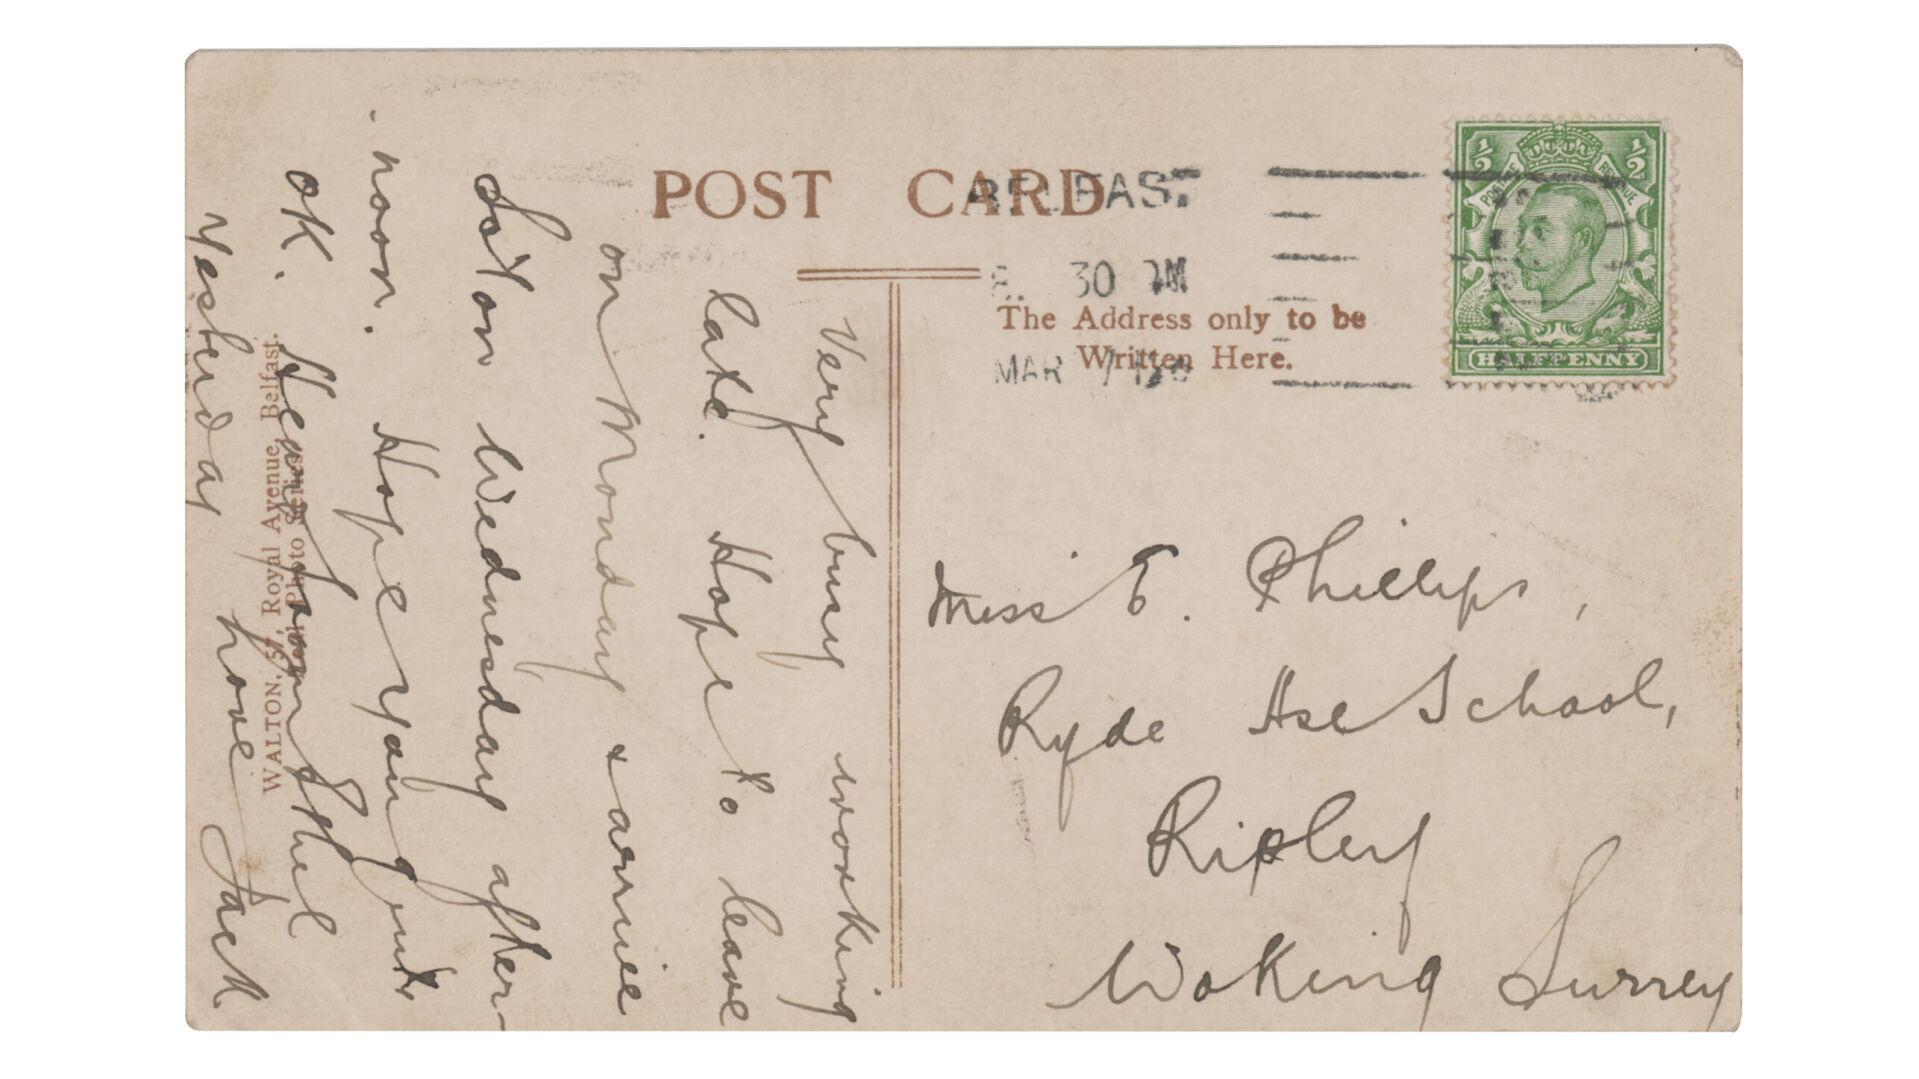 POST CARD
BELFAST
8. 30 PM
MAR
The Address only to be
Written Here.
½ ½
POSTAGE REVENUE
HALFPENNY
Very busy working
late. Hope to leave
on Monday & arrive
on Wednesday after-
noon. Hope you
OK. Hear from Ethel
Yesterday Love Jack
WALTON, 57, Royal Avenue, Belfast.
Real Photo Series.
Miss E. Phillips,
Ryde Hse School,
Ripley
Woking Surrey